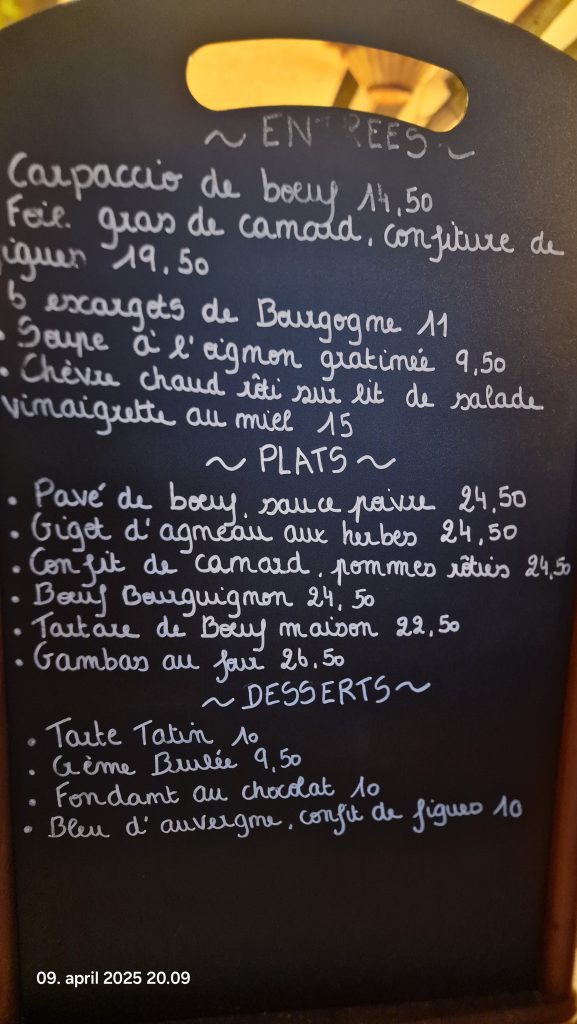 ~ ENTREES ~
Carpaccio de boeuf 14,50
Foie gras de canard, confiture de
figues 19,50
6 escargots de Bourgogne 11
• Soupe à l'oignon gratinée 9,50
• Chèvre chaud rôti sur lit de salade
vinaigrette au miel 15
~ PLATS ~
• Pavé de boeuf, sauce poivre 24,50
• Gigot d'agneau aux herbes 24,50
• Confit de canard, pommes rôties 24,50
• Boeuf Bourguignon 24,50
• Tartare de Boeuf maison 22,50
• Gambas au four 26,50
~ DESSERTS ~
• Tarte Tatin 10
• Crème Brulée 9,50
• Fondant au chocolat 10
• Bleu d'auvergne, confit de figues 10
09. april 2025 20.09